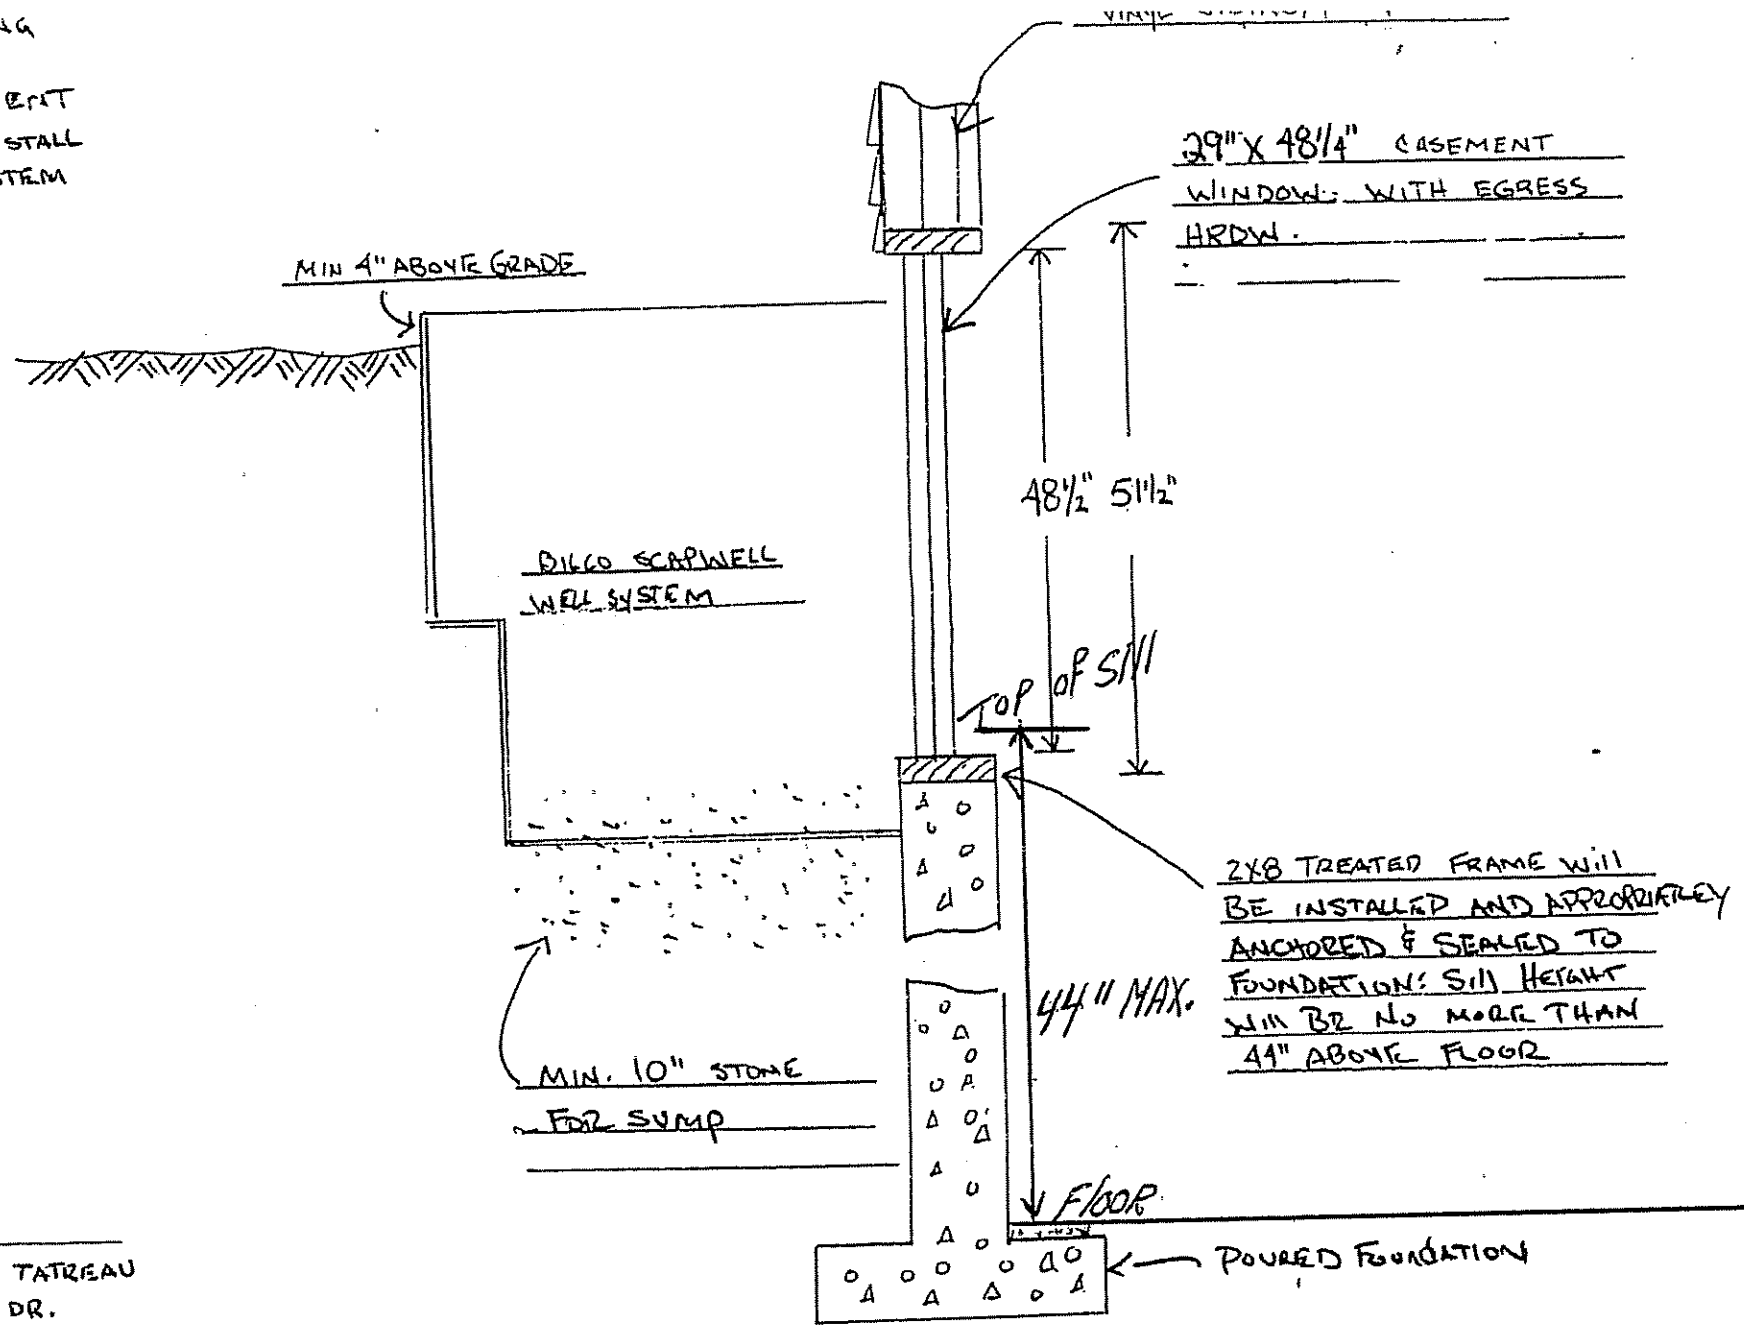 NG
ENT
STALL
STEM
VINYL
MIN 4" ABOVE GRADE
29" X 48 1/4" CASEMENT
WINDOW: WITH EGRESS
HRDW.
48 1/2" 51 1/2"
BILCO SCAPWELL
WELL SYSTEM
TOP OF SIll
2X8 TREATED FRAME WIll
BE INSTALLED AND APPROPRIATLEY
ANCHORED & SEALED TO
FOUNDATION: SIll HEIGHT
WIll BE NO MORE THAN
44" ABOVE FLOOR
44" MAX.
MIN. 10" STONE
FOR SUMP
FlOOR
POURED FOUNDATION
TATREAU
DR.